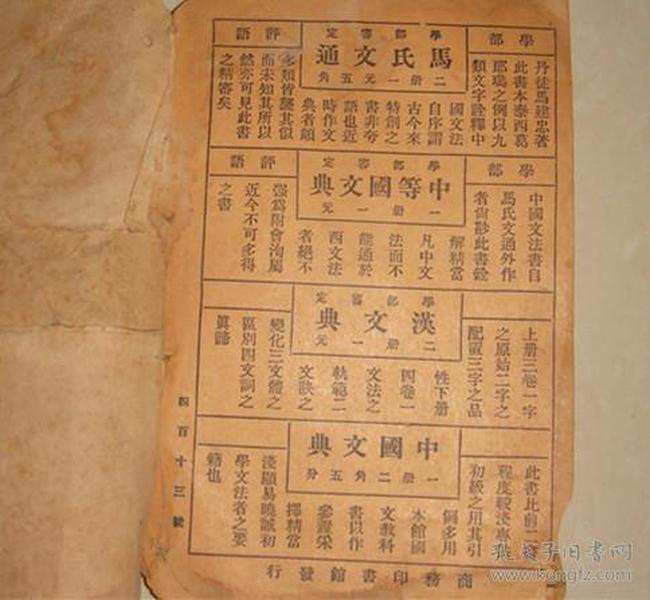 學部
學部審定
馬氏文通
二册一元五角
評語
丹徒馬建忠著
此書本泰西葛
郎瑪之例以九
類文字詮釋中
國文法
自序謂
古今來
特創之
書非夸
語也近
時作文
典者頗
多類皆襲其似
而未知其所以
然亦可見此書
之精審矣
學部
學部審定
中等國文典
一册一元
評語
中國文法書自
馬氏文通外作
者尙尠此書詮
解精當
凡中文
法而不
能通於
西文法
者絕不
强爲附會洵屬
近今不可多得
之書
學部審定
漢文典
二册一元
上册三卷一字
之原始二字之
配置三字之品
性下册
四卷一
文法之
軌範二
文訣之
變化三文體之
區別四文詞之
眞諦
中國文典
一册二角五分
此書比前二
程度較淺專
初級之用其引
例多用
本館國
文敎科
書以作
參證采
擇精當
淺顯易曉誠初
學文法者之要
籍也
商務印書館發行
四百十三號
孔夫子旧书网
www.kongfz.com